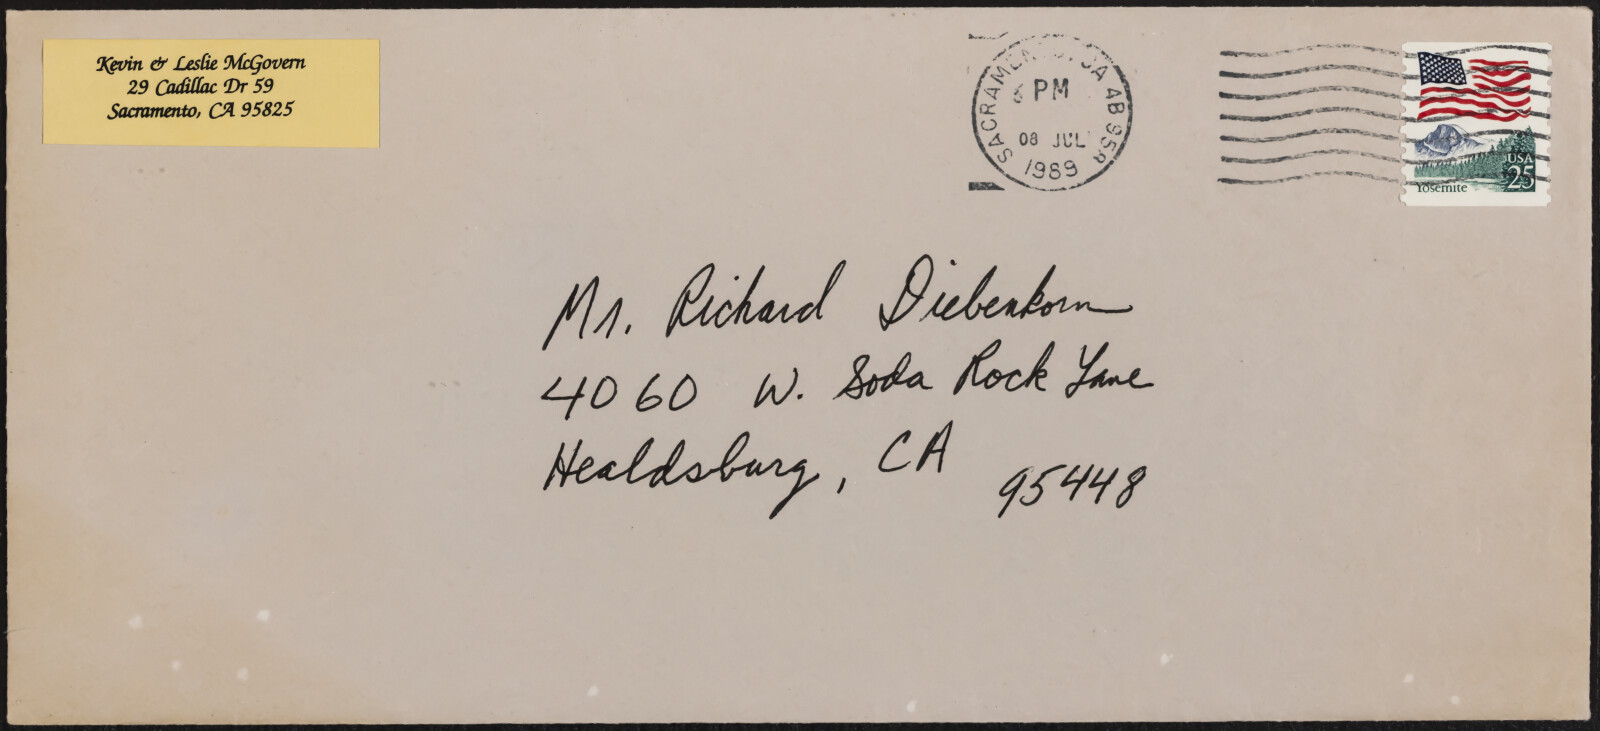 Kevin & Leslie McGovern
29 Cadillac Dr 59
Sacramento, CA 95825
SACRAMENTO, CA
PM
08 JUL
1989
USA
25
Yosemite
Mr. Richard Diebenkorn
4060 W. Soda Rock Lane
Healdsburg, CA 95448